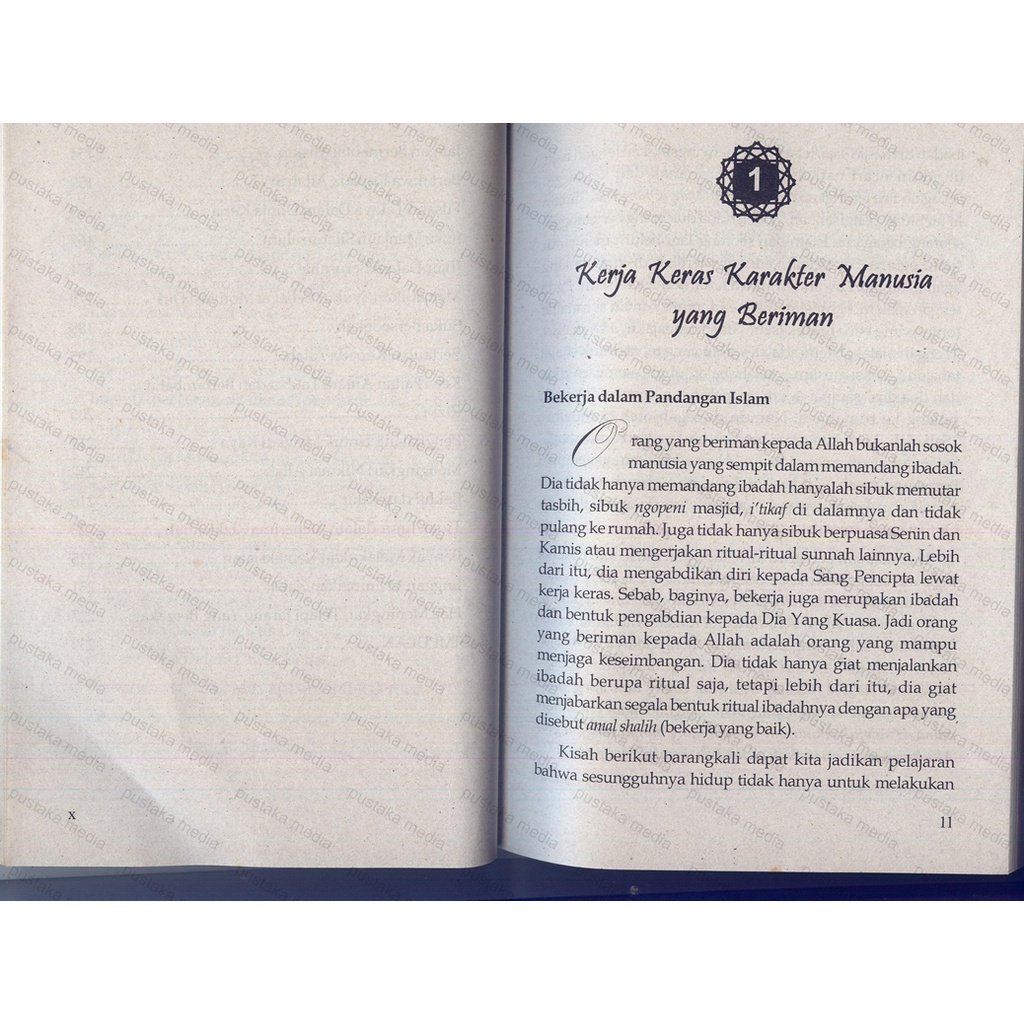 x
1
Kerja Keras Karakter Manusia
yang Beriman
Bekerja dalam Pandangan Islam
Orang yang beriman kepada Allah bukanlah sosok
manusia yang sempit dalam memandang ibadah.
Dia tidak hanya memandang ibadah hanyalah sibuk memutar
tasbih, sibuk ngopeni masjid, i'tikaf di dalamnya dan tidak
pulang ke rumah. Juga tidak hanya sibuk berpuasa Senin dan
Kamis atau mengerjakan ritual-ritual sunnah lainnya. Lebih
dari itu, dia mengabdikan diri kepada Sang Pencipta lewat
kerja keras. Sebab, baginya, bekerja juga merupakan ibadah
dan bentuk pengabdian kepada Dia Yang Kuasa. Jadi orang
yang beriman kepada Allah adalah orang yang mampu
menjaga keseimbangan. Dia tidak hanya giat menjalankan
ibadah berupa ritual saja, tetapi lebih dari itu, dia giat
menjabarkan segala bentuk ritual ibadahnya dengan apa yang
disebut amal shalih (bekerja yang baik).
Kisah berikut barangkali dapat kita jadikan pelajaran
bahwa sesungguhnya hidup tidak hanya untuk melakukan
11
pustaka media